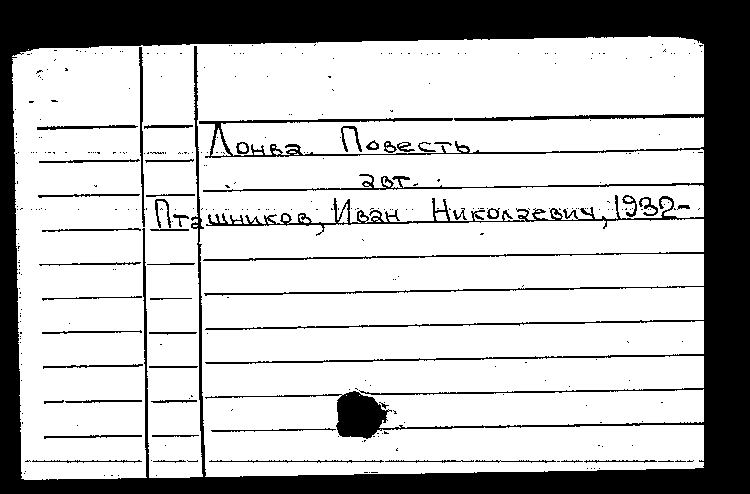 Лонва. Повесть.
авт.:
Пташников, Иван Николаевич, 1932-